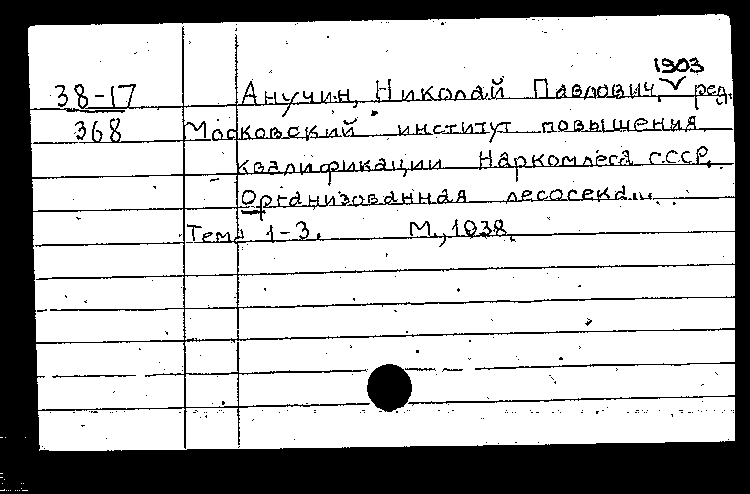 1903
38-17 Анучин, Николай Павлович, ред.
368 Московский институт повышения
квалификации Наркомлеса СССР.
Организованная лесосека...
Тема 1-3. М., 1938.